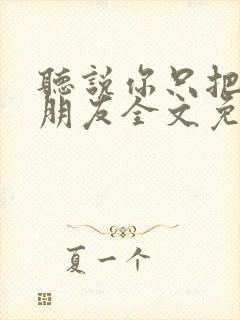 聽說你只把
朋友全文免
夏一个